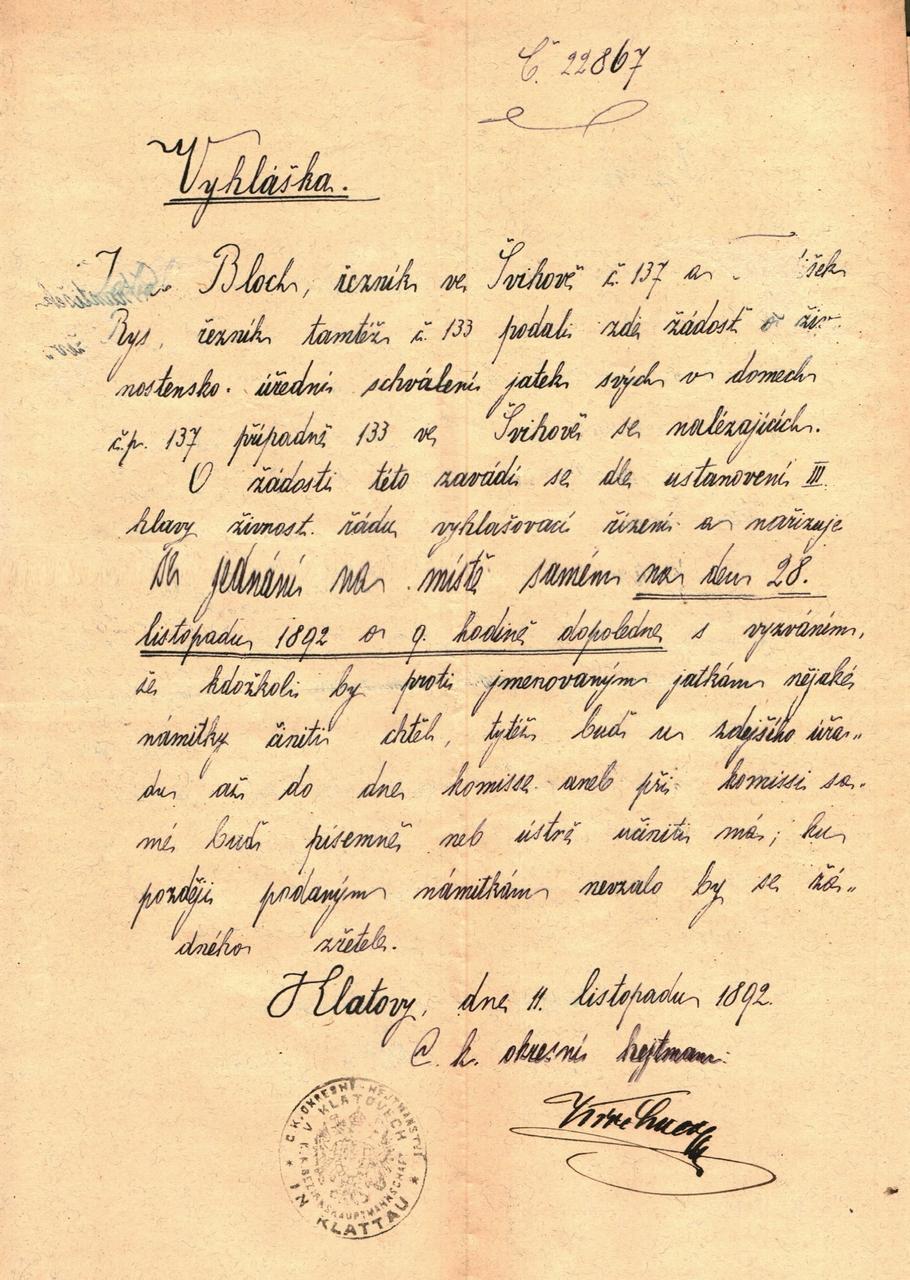 Č. 22867
Vyhláška.
Bloch, řezník ve Švihově č. 137 a
Rys, řezník tamtéž č. 133 podali zde žádost o živ-
nostensko-úřední schválení jatek svých v domech
č.p. 137 případně 133 ve Švihově se nalézajících.
O žádosti této zavádí se dle ustanovení III.
hlavy živnost. řádu vyhlašovací řízení a nařizuje
se jednání na místě samém na den 28.
listopadu 1892 o 9. hodině dopoledne s vyzváním,
že kdožkoli by proti jmenovaným jatkám nějaké
námitky činiti chtěl, tytéž buď u zdejšího úřa-
du až do dne komisse aneb při komissi sa-
mé buď písemně neb ústně učiniti má, ku
později podaným námitkám nevzalo by se žá-
dného zřetele.
Klatovy, dne 11. listopadu 1892.
C. k. okresní hejtman:
C.K. OKRESNÍ HEJTMANSTVÍ
V KLATOVECH
K.K. BEZIRKSHAUPTMANNSCHAFT
IN KLATTAU